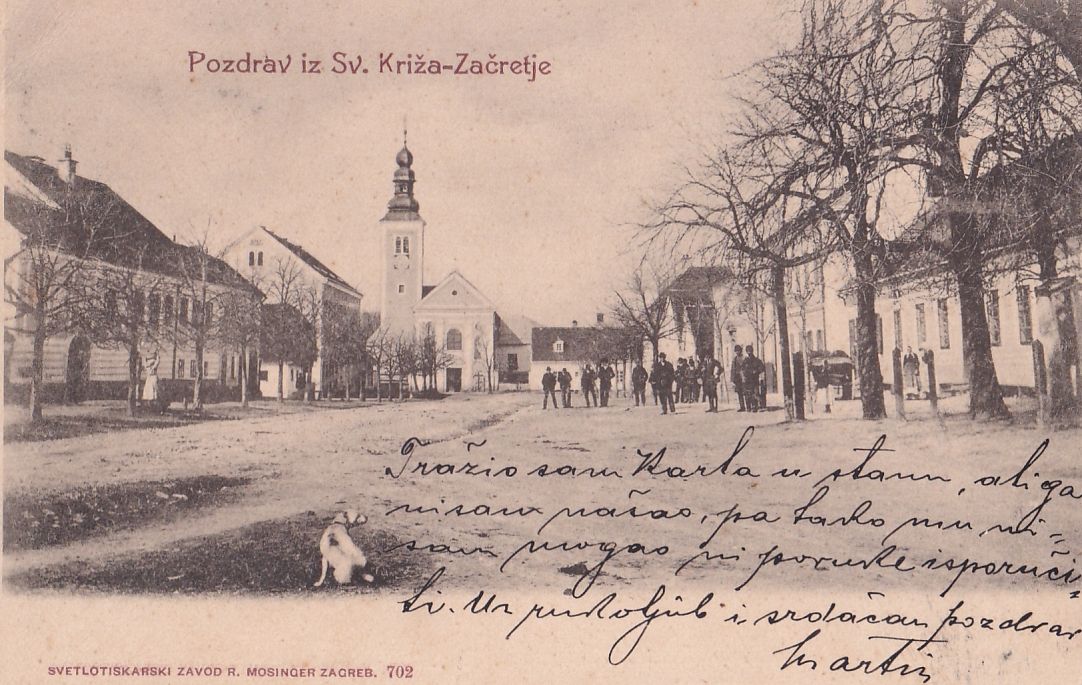 Pozdrav iz Sv. Križa-Začretje
Tražio sam Karla u stanu, ali ga
nisam našao, pa tako mu ni-
sam mogao ni poruke isporuči-
ti. Uz rukoljub i srdačan pozdrav
Martin
SVETLOTISKARSKI ZAVOD R. MOSINGER ZAGREB. 702